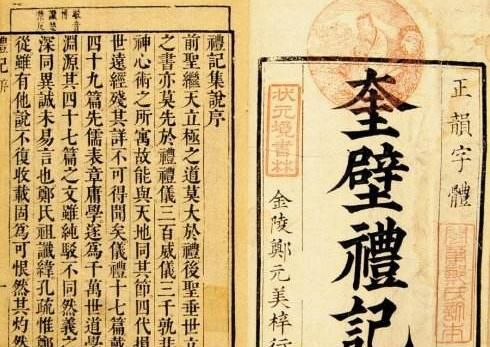 正韻字體
奎壁禮記
金陵鄭元美梓行
狀元境書林
禮記集說序
前聖繼天立極之道莫大於禮後聖垂世立
之書亦莫先於禮禮儀三百威儀三千孰非
神心術之所寓故能與天地同其節四代損
世遠經殘其詳不可得聞矣儀禮十七篇戴
四十九篇先儒表章庸學遂為千萬世道學
淵源其四十七篇之文雖純駁不同然義之
深同異誠未易言也鄭氏祖讖緯孔疏惟鄭
從雖有他說不復收載固為可恨然其灼然
禮記 序